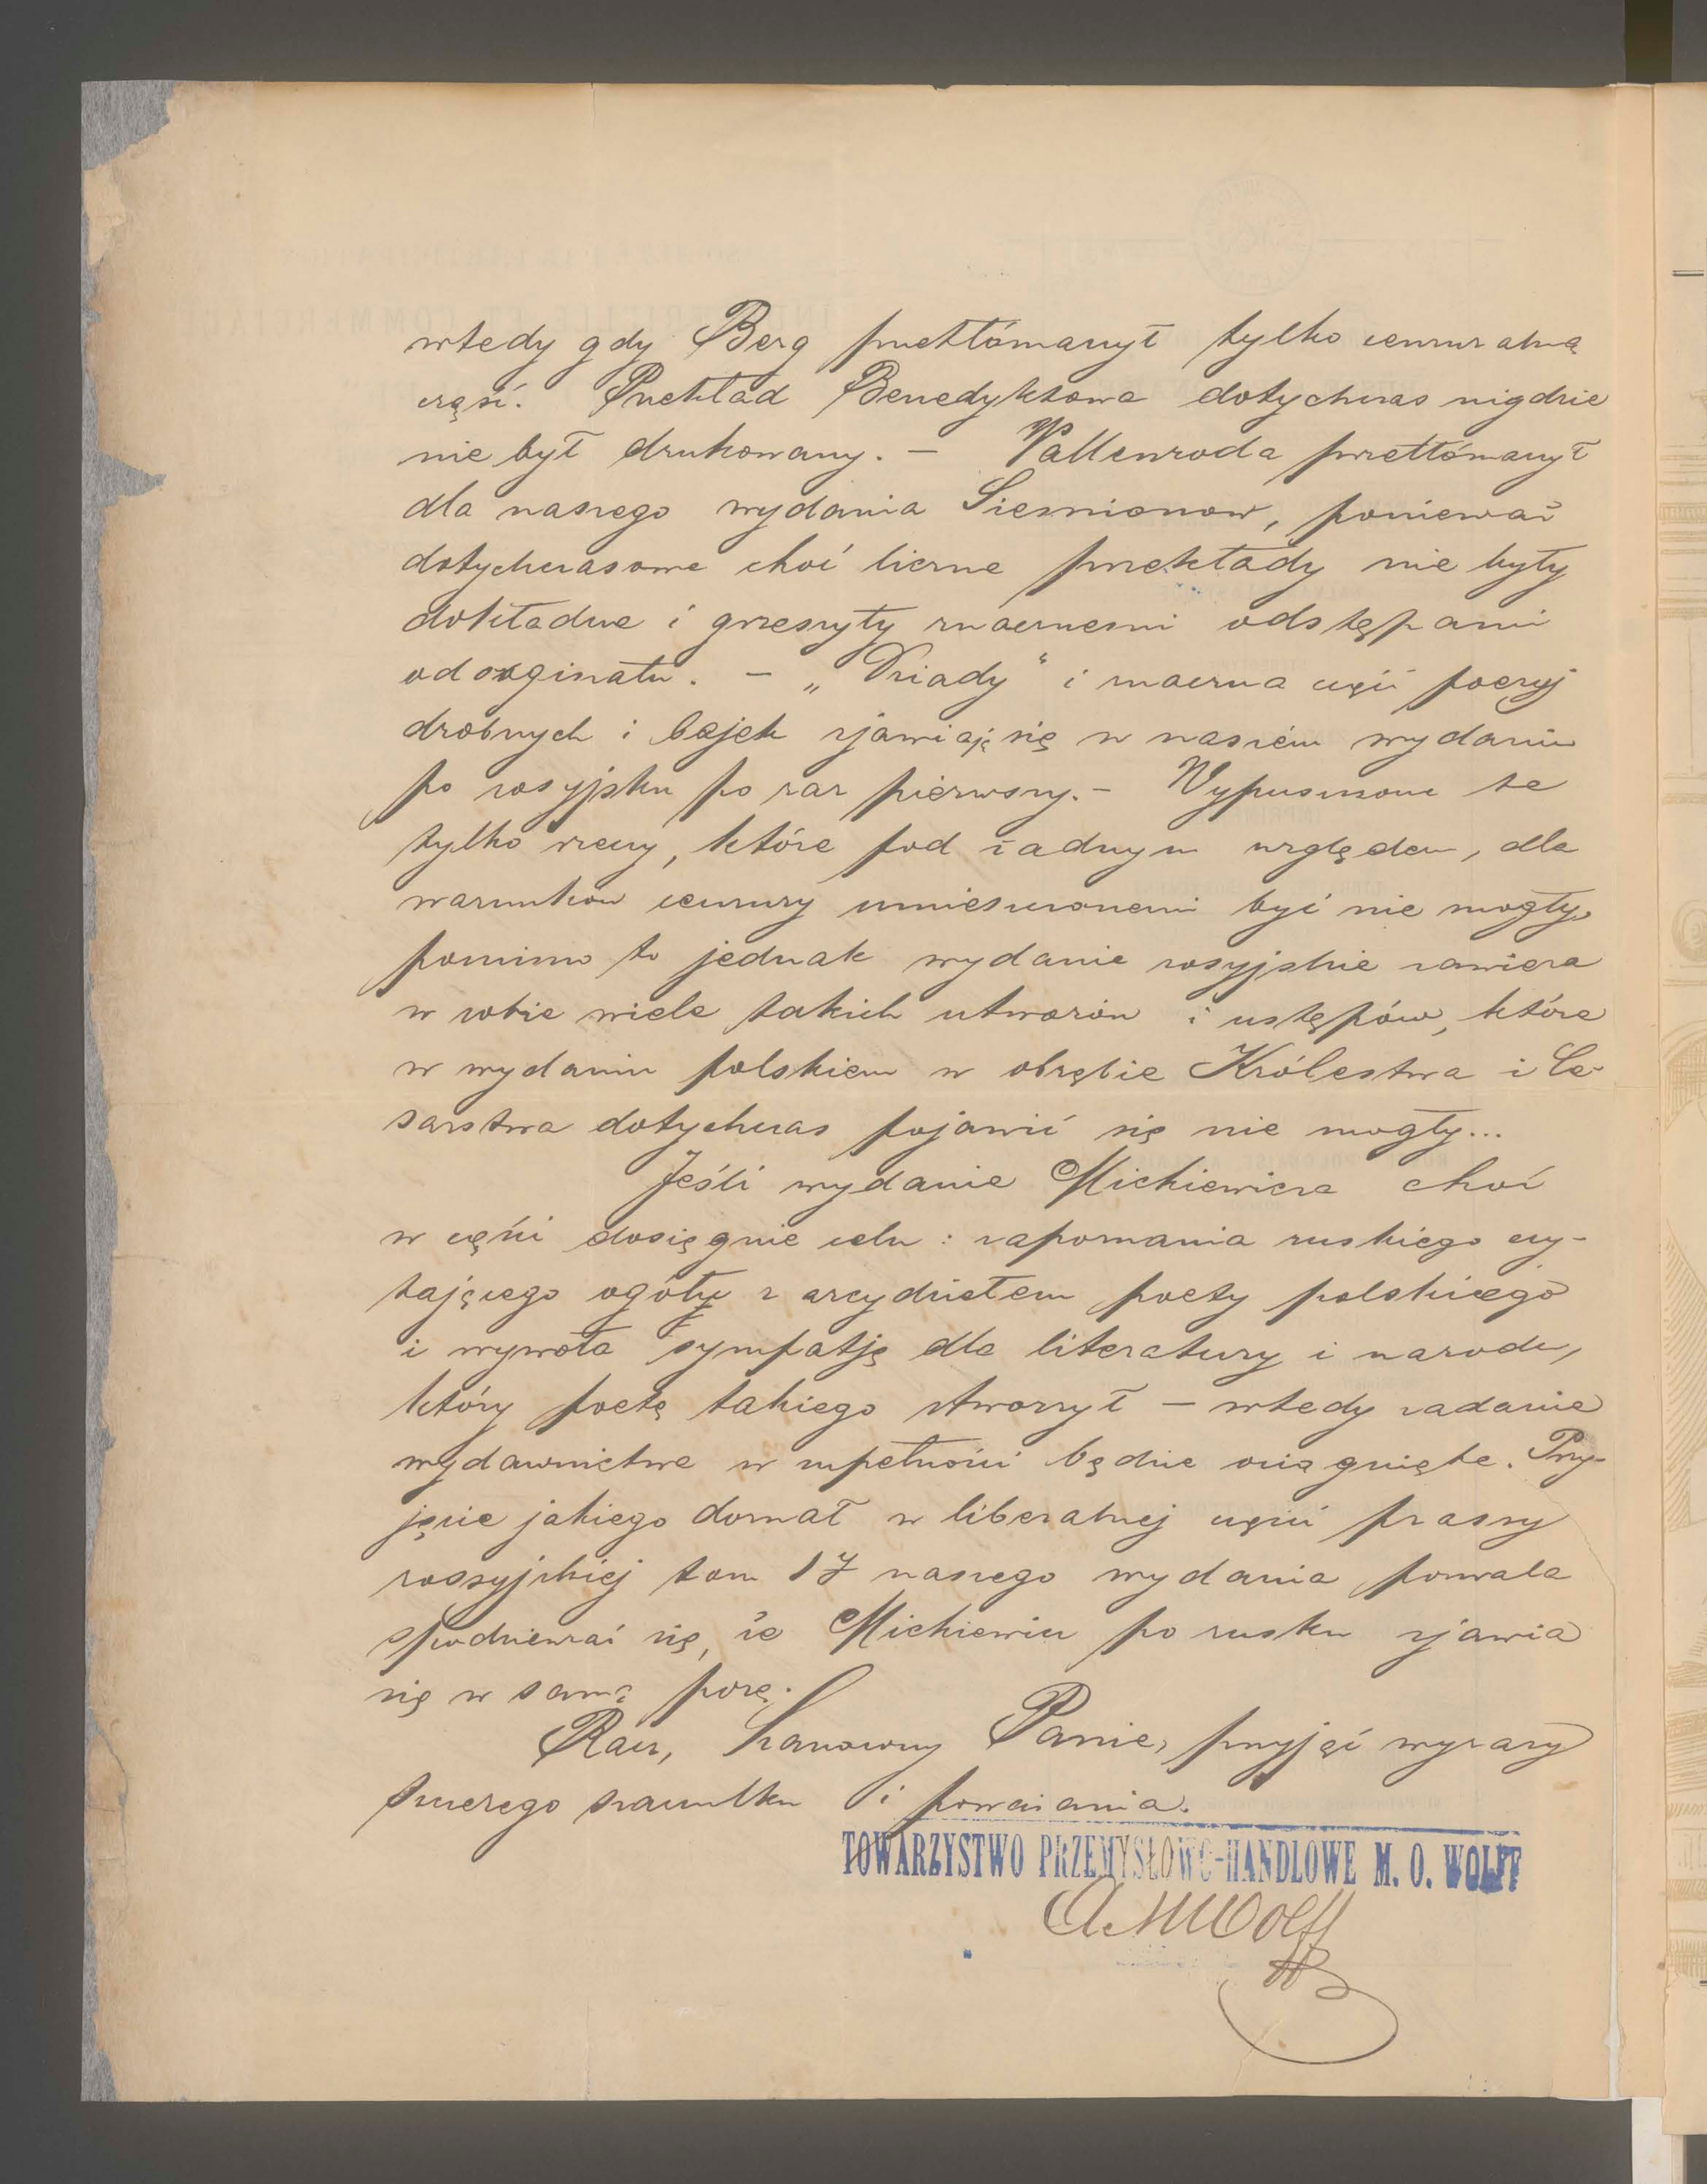 wtedy gdy Berg przetłómaczył tylko cenzuralną
część. Przekład Benedyktowa dotychczas nigdzie
nie był drukowany. – Wallenroda przetłómaczył
dla naszego wydania Siemionow, ponieważ
dotychczasowe choć liczne przekłady nie były
dokładne i grzeszyły znacznemi odstępami
od orginału. – „Dziady“ i znaczna część poezyj
drobnych i bajek zjawiają się w naszém wydaniu
po rosyjsku po raz pierwszy. – Wypuszczone te
tylko rzeczy, które pod żadnym względem, dla
warunków cenzury umieszczonemi być nie mogły,
pomimo to jednak wydanie rosyjskie zawiera
w sobie wiele takich utworów i ustępów, które
w wydaniu polskiem w obrębie Królestwa i Ce-
sarstwa dotychczas pojawić się nie mogły...
Jeśli wydanie Mickiewicza choć
w części dosięgnie celu: zapoznania ruskiego czy-
tającego ogółu z arcydziełem poety polskiego
i wywoła sympatję dla literatury i narodu,
który poetę takiego stworzył – wtedy zadanie
wydawnictwa w zupełności będzie osiągnięte. Przy-
jęcie jakiego doznał w liberalnej części prassy
rossyjskiej tom 1y naszego wydania pozwala
spodziewać się, że Mickiewicz po rusku zjawia
się w samą porę.
Racz, Szanowny Panie, przyjąć wyrazy
szczerego szacunku i poważania.
TOWARZYSTWO PRZEMYSŁOWO-HANDLOWE M. O. WOLFF
A. M. Wolff